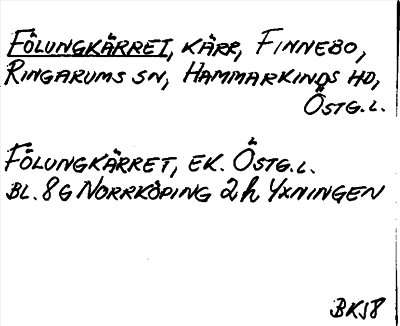 FÖLUNGKÄRRET, KÄRR, FINNEBO,
RINGARUMS SN, HAMMARKINDS HD,
ÖSTG.L.
FÖLUNGKÄRRET, EK. ÖSTG.L.
BL. 8G NORRKÖPING 2h YXNINGEN
BKJ8